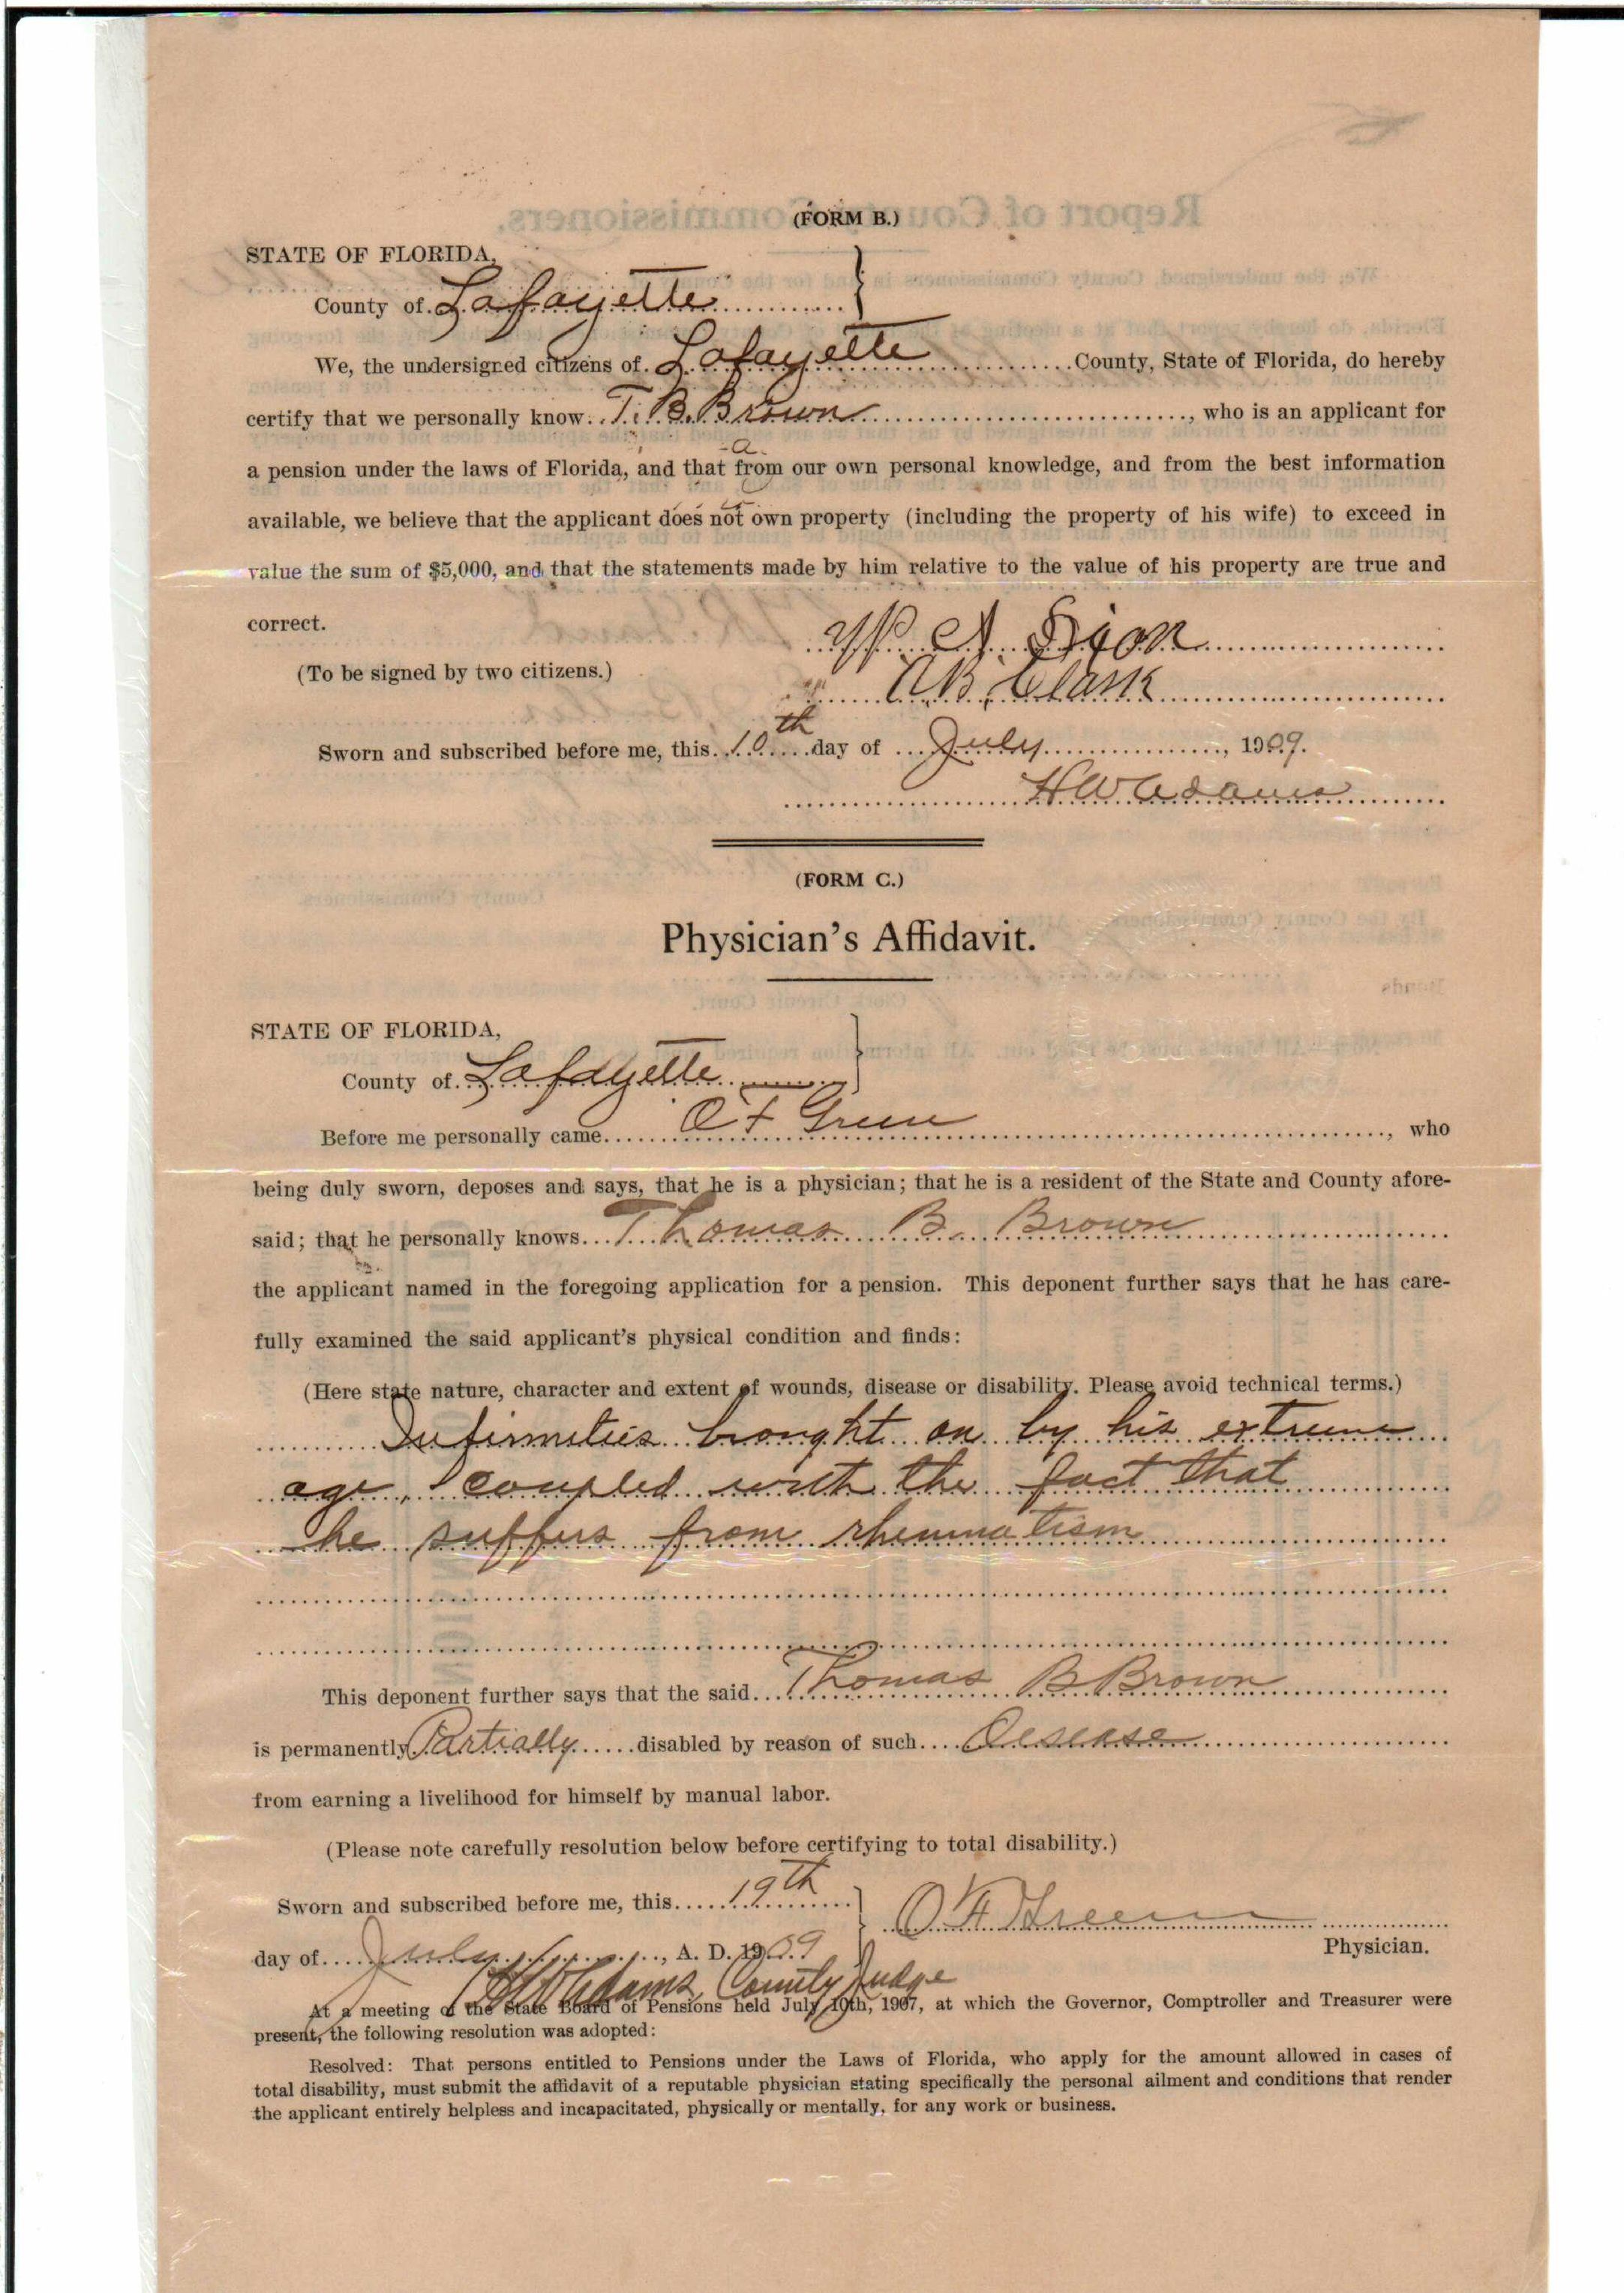 (FORM B.)
STATE OF FLORIDA,
County of Lafayette
We, the undersigned citizens of Lafayette County, State of Florida, do hereby
certify that we personally know T. B. Brown, who is an applicant for
a pension under the laws of Florida, and that from our own personal knowledge, and from the best information
available, we believe that the applicant does not own property (including the property of his wife) to exceed in
value the sum of $5,000, and that the statements made by him relative to the value of his property are true and
correct.
(To be signed by two citizens.)
A. B. Clark
Sworn and subscribed before me, this 10th day of July, 1909.
H W Adams
(FORM C.)
Physician's Affidavit.
STATE OF FLORIDA,
County of Lafayette
Before me personally came O F Green, who
being duly sworn, deposes and says, that he is a physician; that he is a resident of the State and County afore-
said; that he personally knows Thomas B. Brown
the applicant named in the foregoing application for a pension. This deponent further says that he has care-
fully examined the said applicant's physical condition and finds:
(Here state nature, character and extent of wounds, disease or disability. Please avoid technical terms.)
Infirmities brought on by his extreme
age, coupled with the fact that
he suffers from rheumatism
This deponent further says that the said Thomas B Brown
is permanently Partially disabled by reason of such Desease
from earning a livelihood for himself by manual labor.
(Please note carefully resolution below before certifying to total disability.)
Sworn and subscribed before me, this 19th
O F Green
day of July, A. D. 1909
Physician.
H W Adams County Judge
At a meeting of the State Board of Pensions held July 10th, 1907, at which the Governor, Comptroller and Treasurer were
present, the following resolution was adopted:
Resolved: That persons entitled to Pensions under the Laws of Florida, who apply for the amount allowed in cases of
total disability, must submit the affidavit of a reputable physician stating specifically the personal ailment and conditions that render
the applicant entirely helpless and incapacitated, physically or mentally, for any work or business.